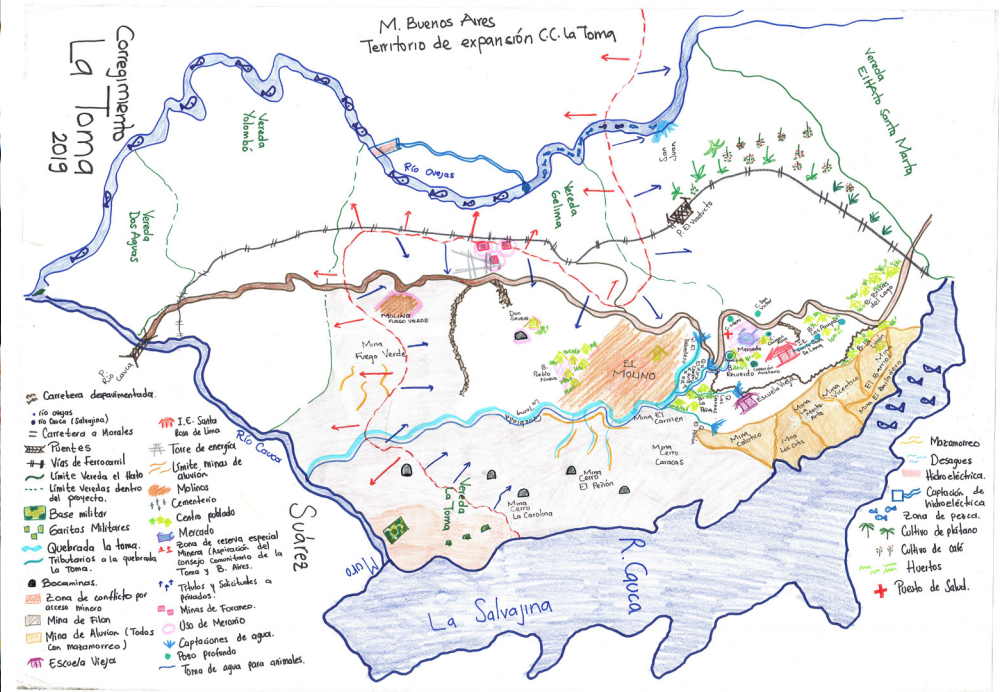 M. Buenos Aires
Territorio de expansión C.C. La Toma
Corregimiento
La Toma
2019
Vereda
Yolombó
Vereda
Dos Aguas
Río Ovejas
Vereda
Gelima
Vereda
El Hato Santa Marta
P. El Viaducto
MOLINO
FUEGO VERDE
Mina
Fuego Verde
B.
Pueblo
Nuevo
EL
MOLINO
Mercado
B.
Recuerdo
Escuela Vieja
B. Brisas
del Lago
Mina El Carmen
Mina
Cerro
Caracas
Mina
Cerro
El Peñón
Mina
Cerro
La Carolina
Vereda
La Toma
Mina
Calolico
Mina
Las Cruz
Mina
Vicentico
Mina
El Barrion
Río
Cauca
Río Cauca
Suárez
Muro
La Salvajina
R. Cauca
Carretera departamentada.
río ovejas
río Cauca (Salvajina)
Carretera a Morales
Puentes
Vías de Ferrocarril
Límite Vereda el Hato
Límite Veredas dentro
del proyecto.
Base militar
Garitos Militares
Quebrada la toma.
Tributarios a la quebrada
La Toma.
Bocaminas.
Zona de conflicto por
acceso minero
Mina de Filon
Mina de Aluvion (Todos
con mazamorreo)
Escuela Vieja
I.E. Santa
Rosa de lima
Torre de energía.
Límite, minas de
aluvión.
Molinos
Cementerio
Centro poblado
Mercado
Zona de reserva especial
Minera (Aspiración del
consejo Comunitario de la
Toma y B. Aires.
Títulos y Solicitudes a
privados.
Minas de Forcaneo.
Uso de Mercurio
Captaciones de agua.
Pozo profundo
Toma de agua para animales.
Mazamorreo
Desagues
Hidroeléctrica.
Captación de
hidroeléctrica
Zona de pesca.
Cultivo de plátano
Cultivo de café
Huertos
Puesto de Salud.